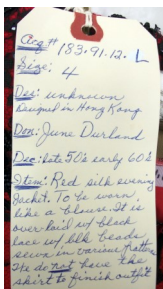 Acq# 183.91.12. L
Size: 4
Des: unknown
Designed in Hong Kong
Don: June Durland
Dec: Late 50's early 60's
Item: Red silk evening
Jacket. To be worn
like a blouse. It is
over laid w/ black
lace w/ blk beads
sewn in various
We do not have the
skirt to finish outfit